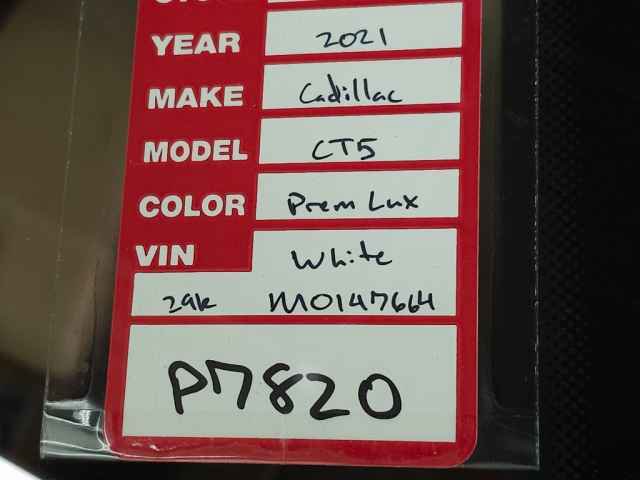 YEAR 2021
MAKE Cadillac
MODEL CT5
COLOR Prem Lux
VIN White
29k M0147664
P7820